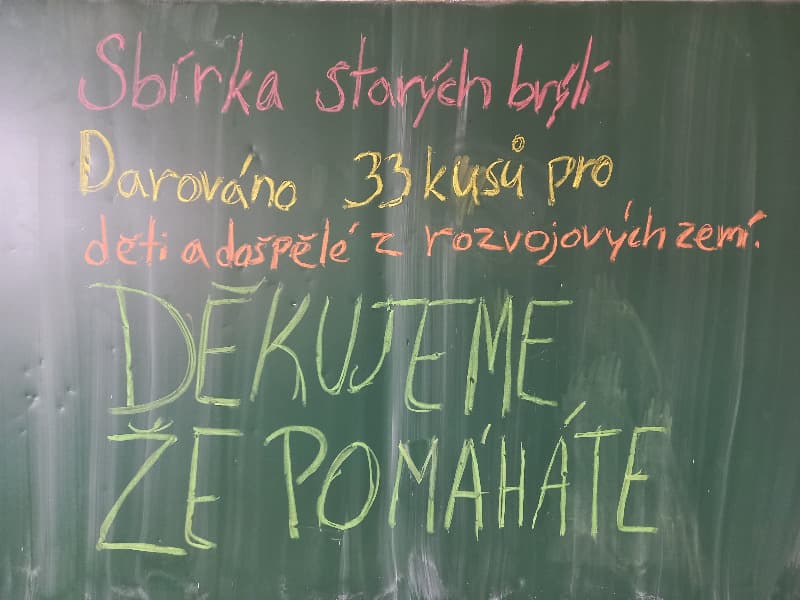 Sbírka starých brýlí
Darováno 33 kusů pro
děti a dospělé z rozvojových zemí.
DĚKUJEME,
ŽE POMÁHÁTE